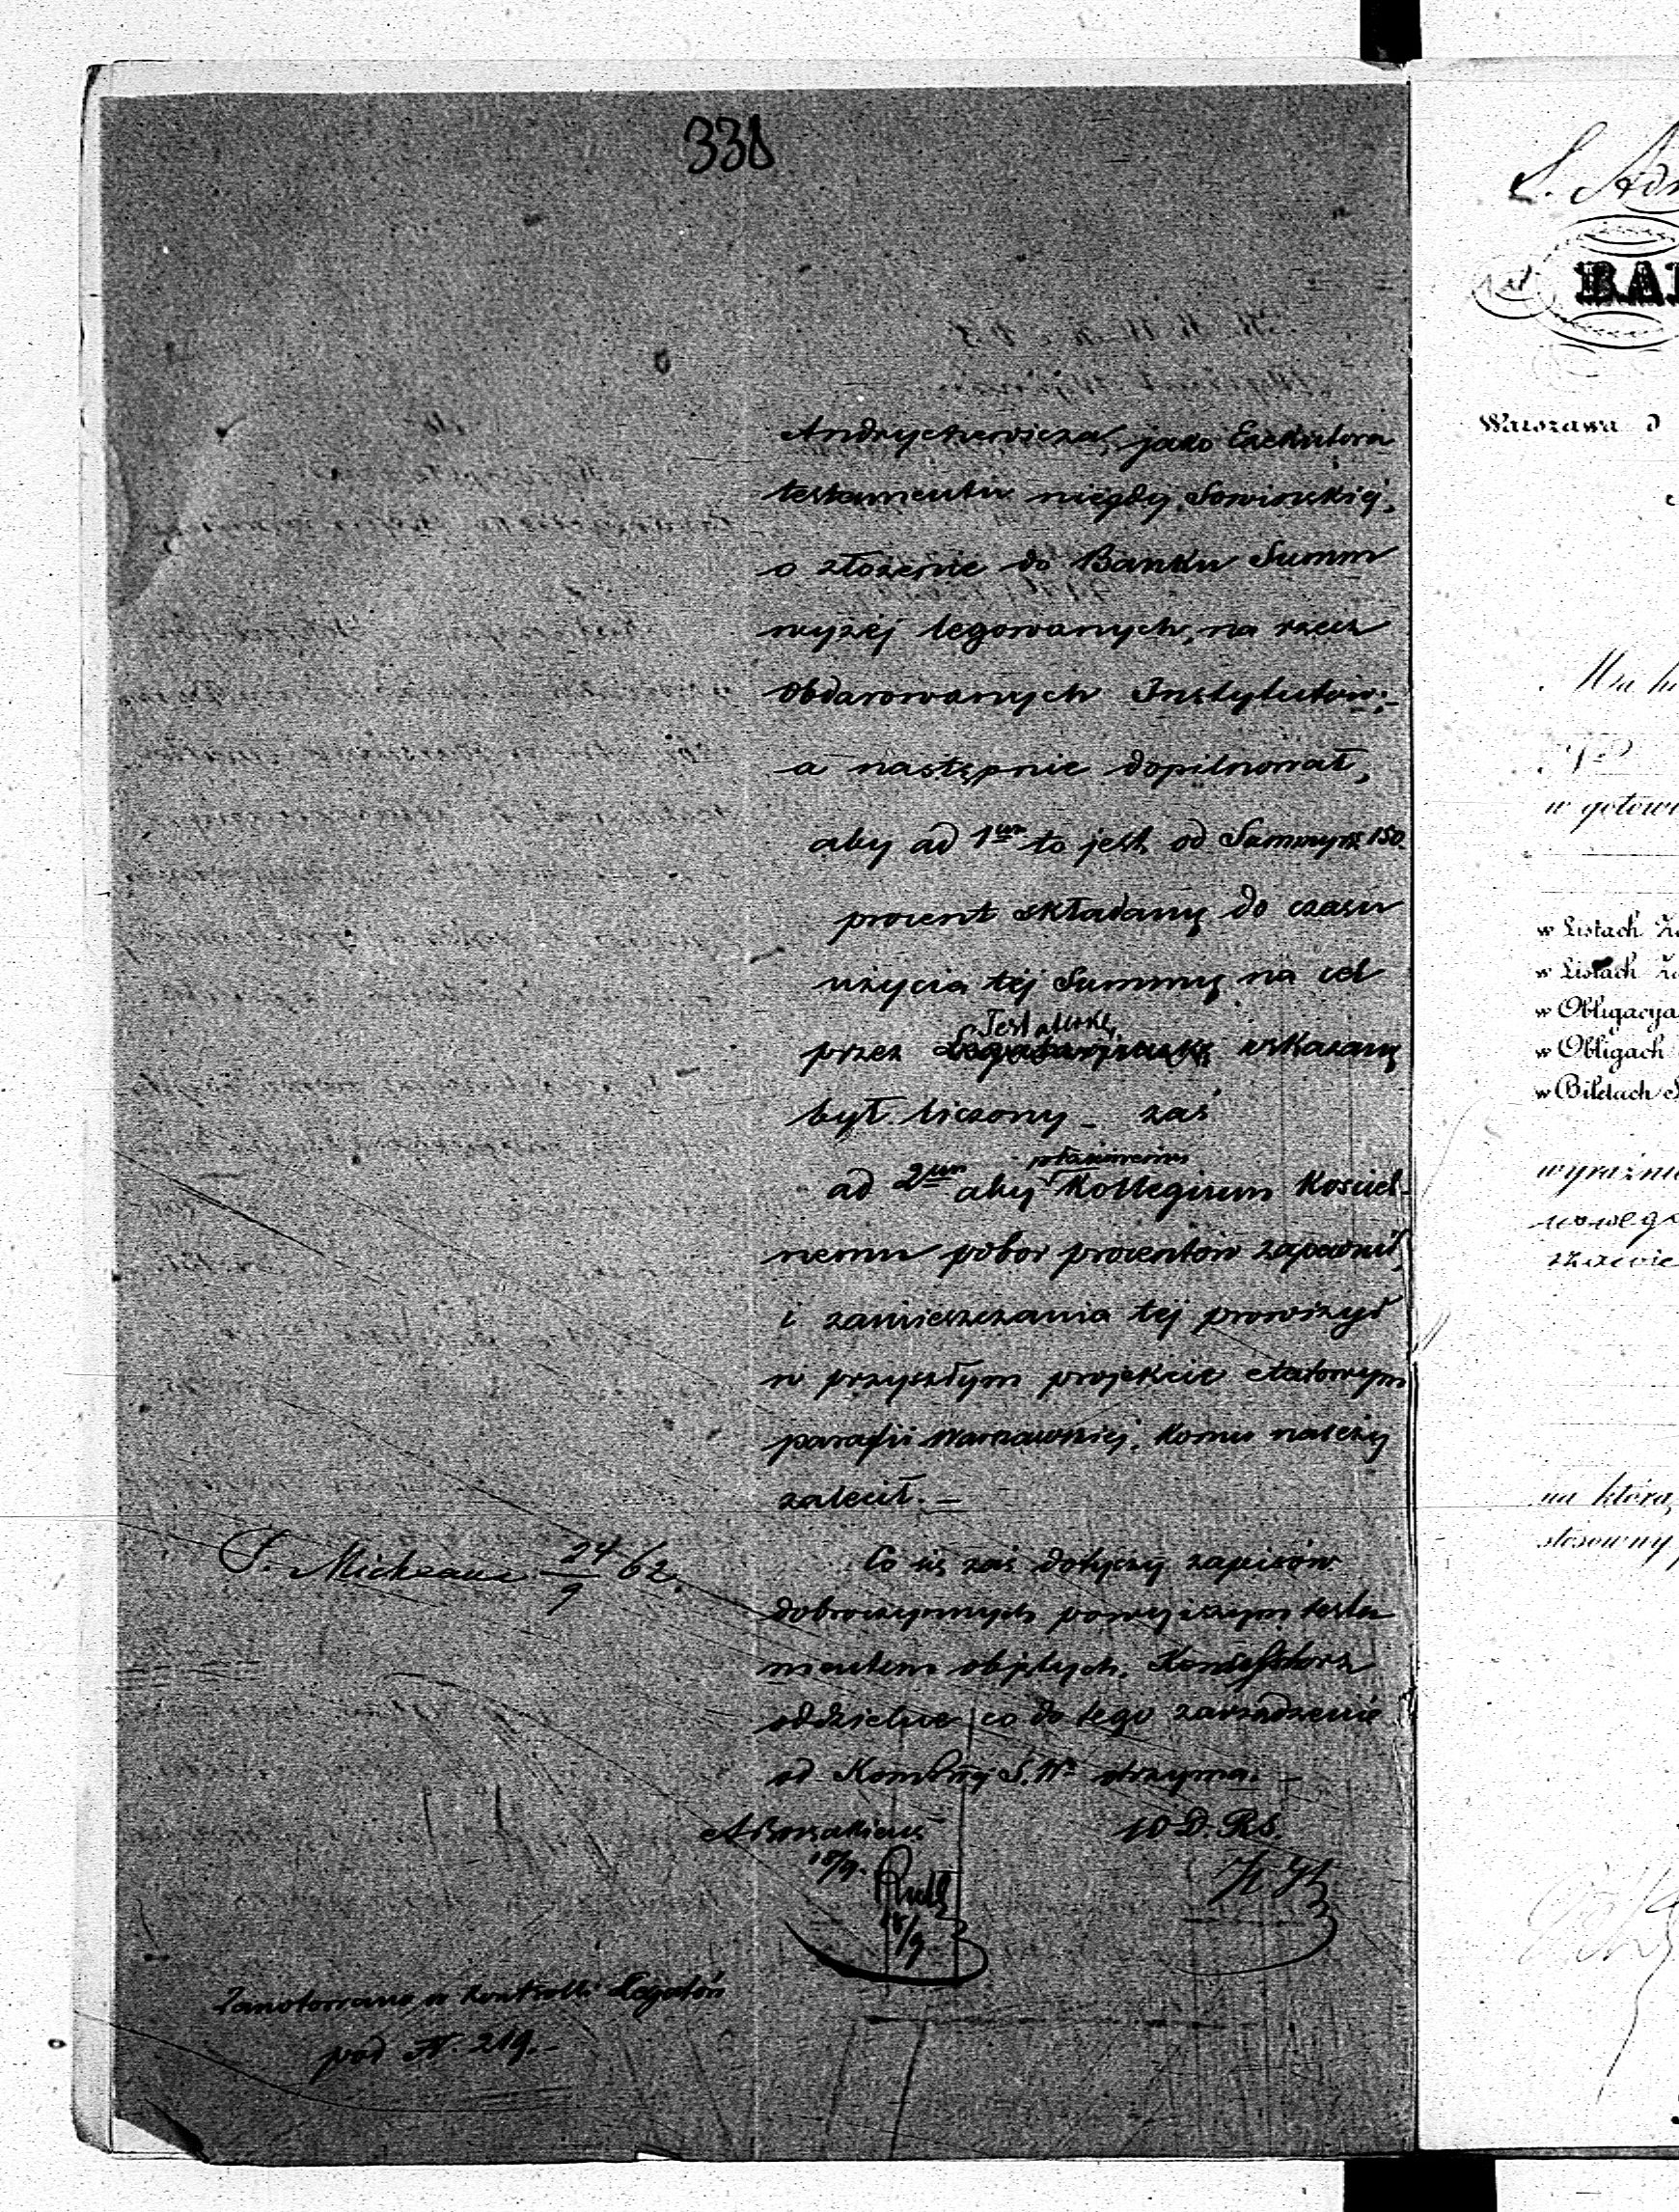 338
Andrychewicza, jako Exekutora
testamentu niegdy Sowinskiej,
o złożenie do Banku Summ
wyżej legowanych, na rzecz
obdarowanych Instytutów;
a następnie dopilnował,
aby ad 1um to jest od Summy rs. 150.
procent składany do czasu
użycia tej Summy na cel
Testatorkę
przez wskazany
był liczony – zaś
właściwemu
ad 2um aby Kollegium Kościel-
nemu pobór procentów zapewnił,
i zamieszczania tej prowizyi
w przyszłym projekcie etatowym
parafii Warszawskiej, komu należy
zalecił. –
Co się zaś dotyczy zapisów
dobroczynnych powyższym testa
mentem objętych, Konsystorz
oddzielne co do tego zarządzenie
od Kom. S. W. otrzyma. –
10 D. RS.
18/9.
18/9
24/9 62.
Zanotowano w kontrolli Legatów
pod N. 219. –
BA
Warszawa d
w gotowi
w Listach
w Listach
w Obligacya
w Obligach
w Biletach
wyraźnie
na którą
stosowny